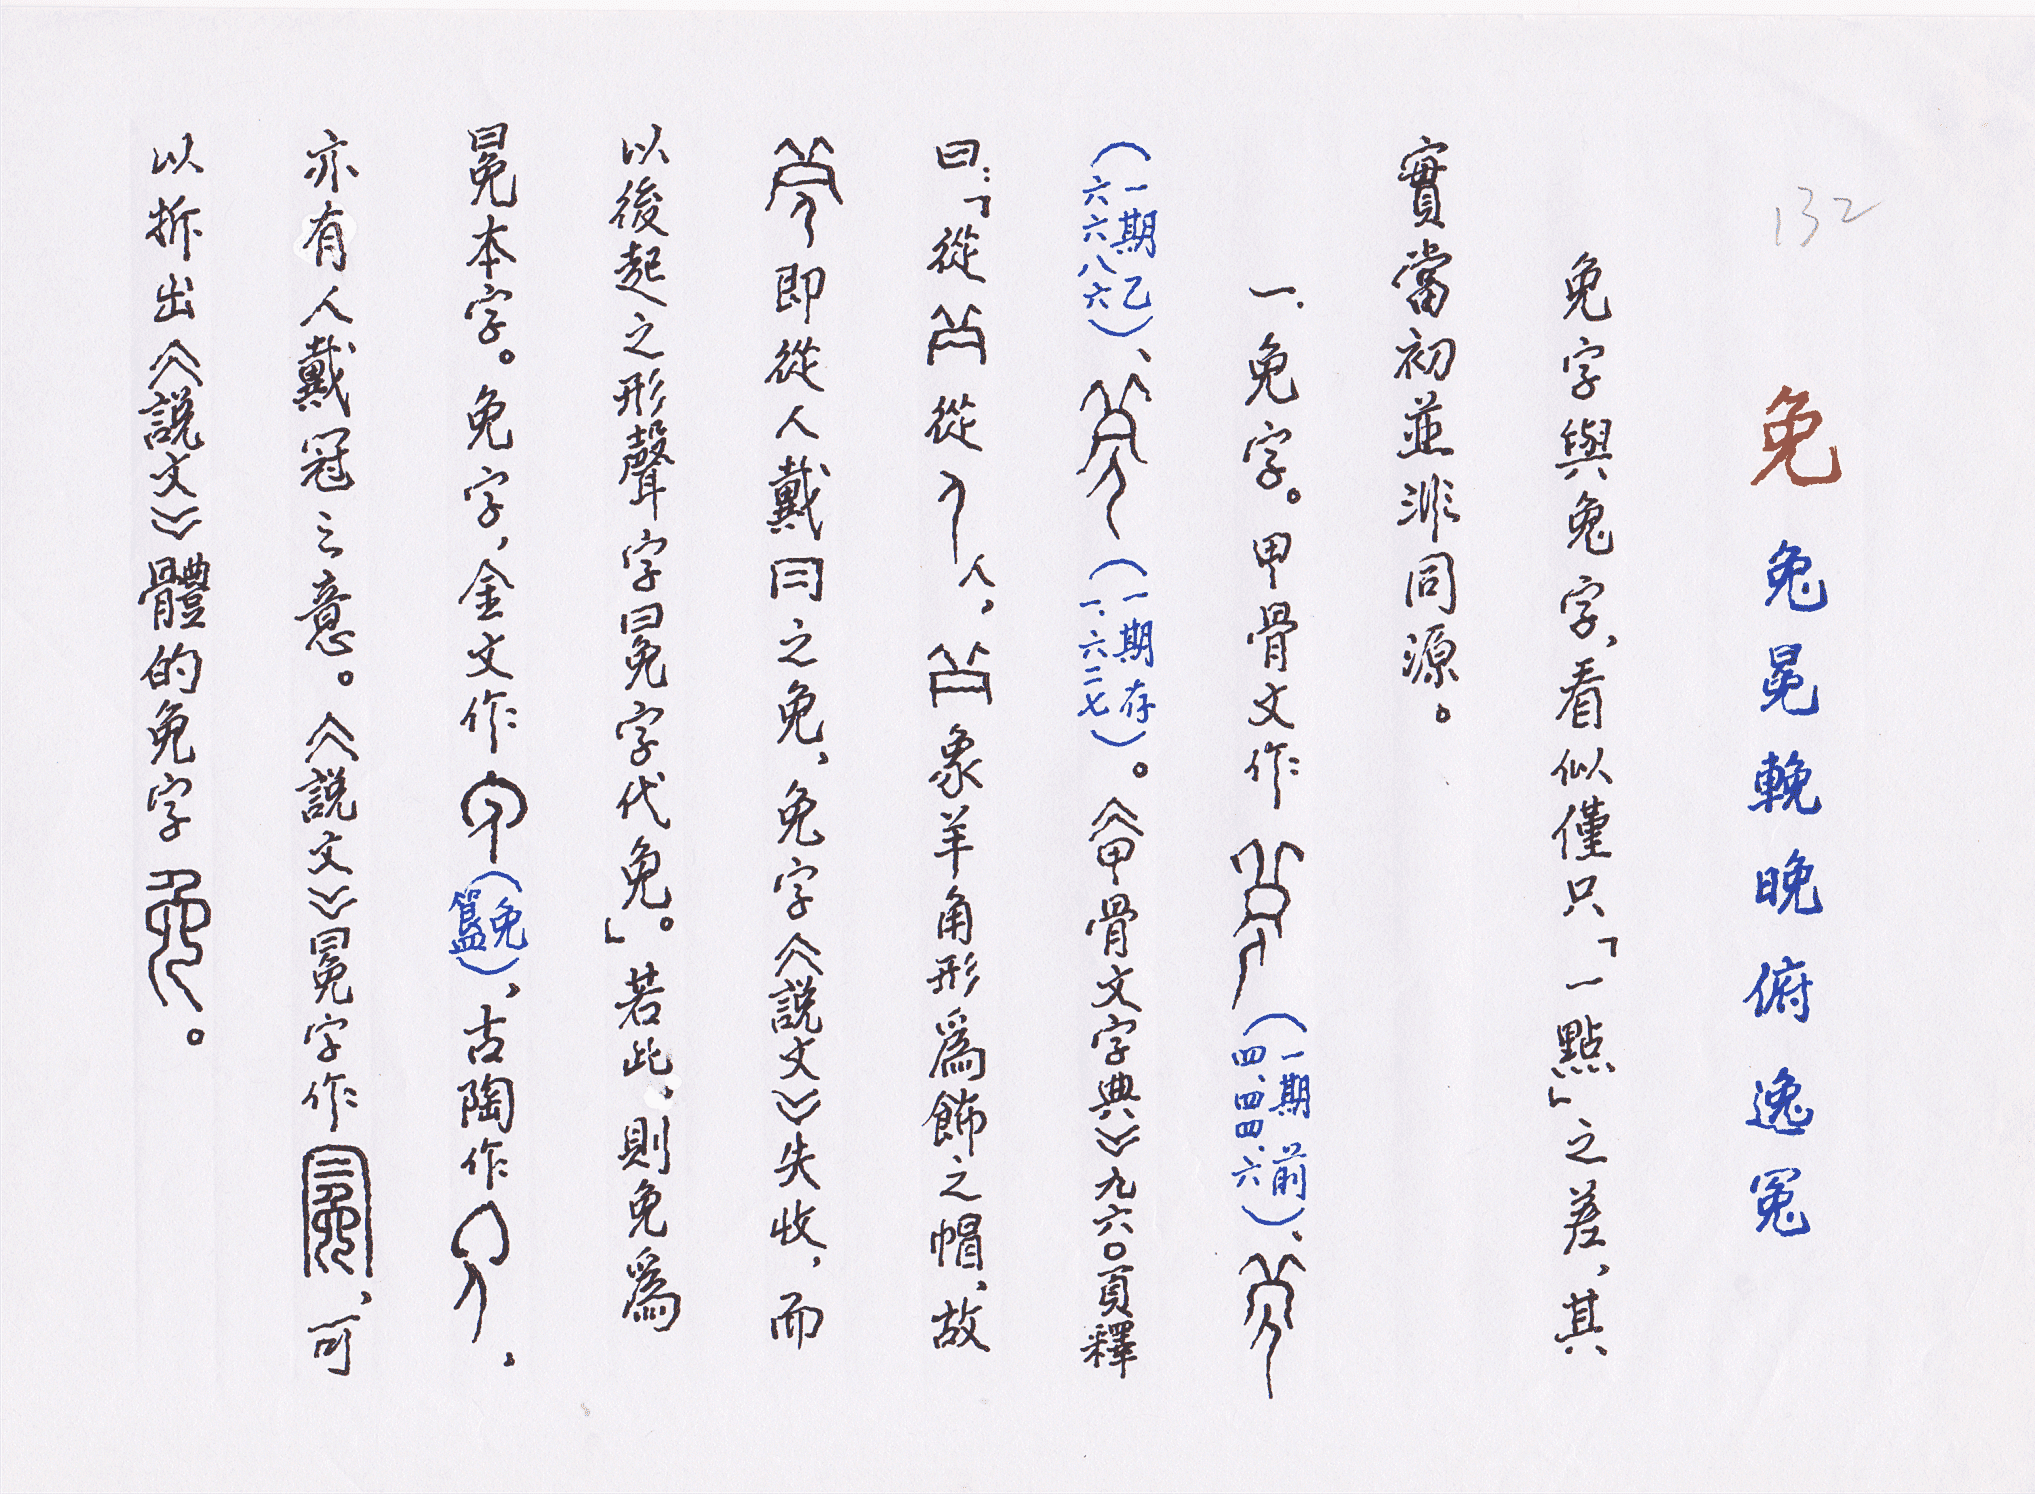 132
免 兔 冕 輓 晚 俯 逸 冤
免字與兔字，看似僅只「一點」之差，其
實當初並非同源。
一.免字。甲骨文作（一期前四.四四.六）、
（一期乙六六八六）、（一期存一.六二七）。《甲骨文字典》九六〇頁釋
曰：「從從人，象羊角形爲飾之帽，故
即從人戴冃之免，免字《說文》失收，而
以後起之形聲字冕字代免」。若此，則免爲
冕本字。免字，金文作（免簋），古陶作，
亦有人戴冠之意。《說文》冕字作，可
以拆出《說文》體的免字。